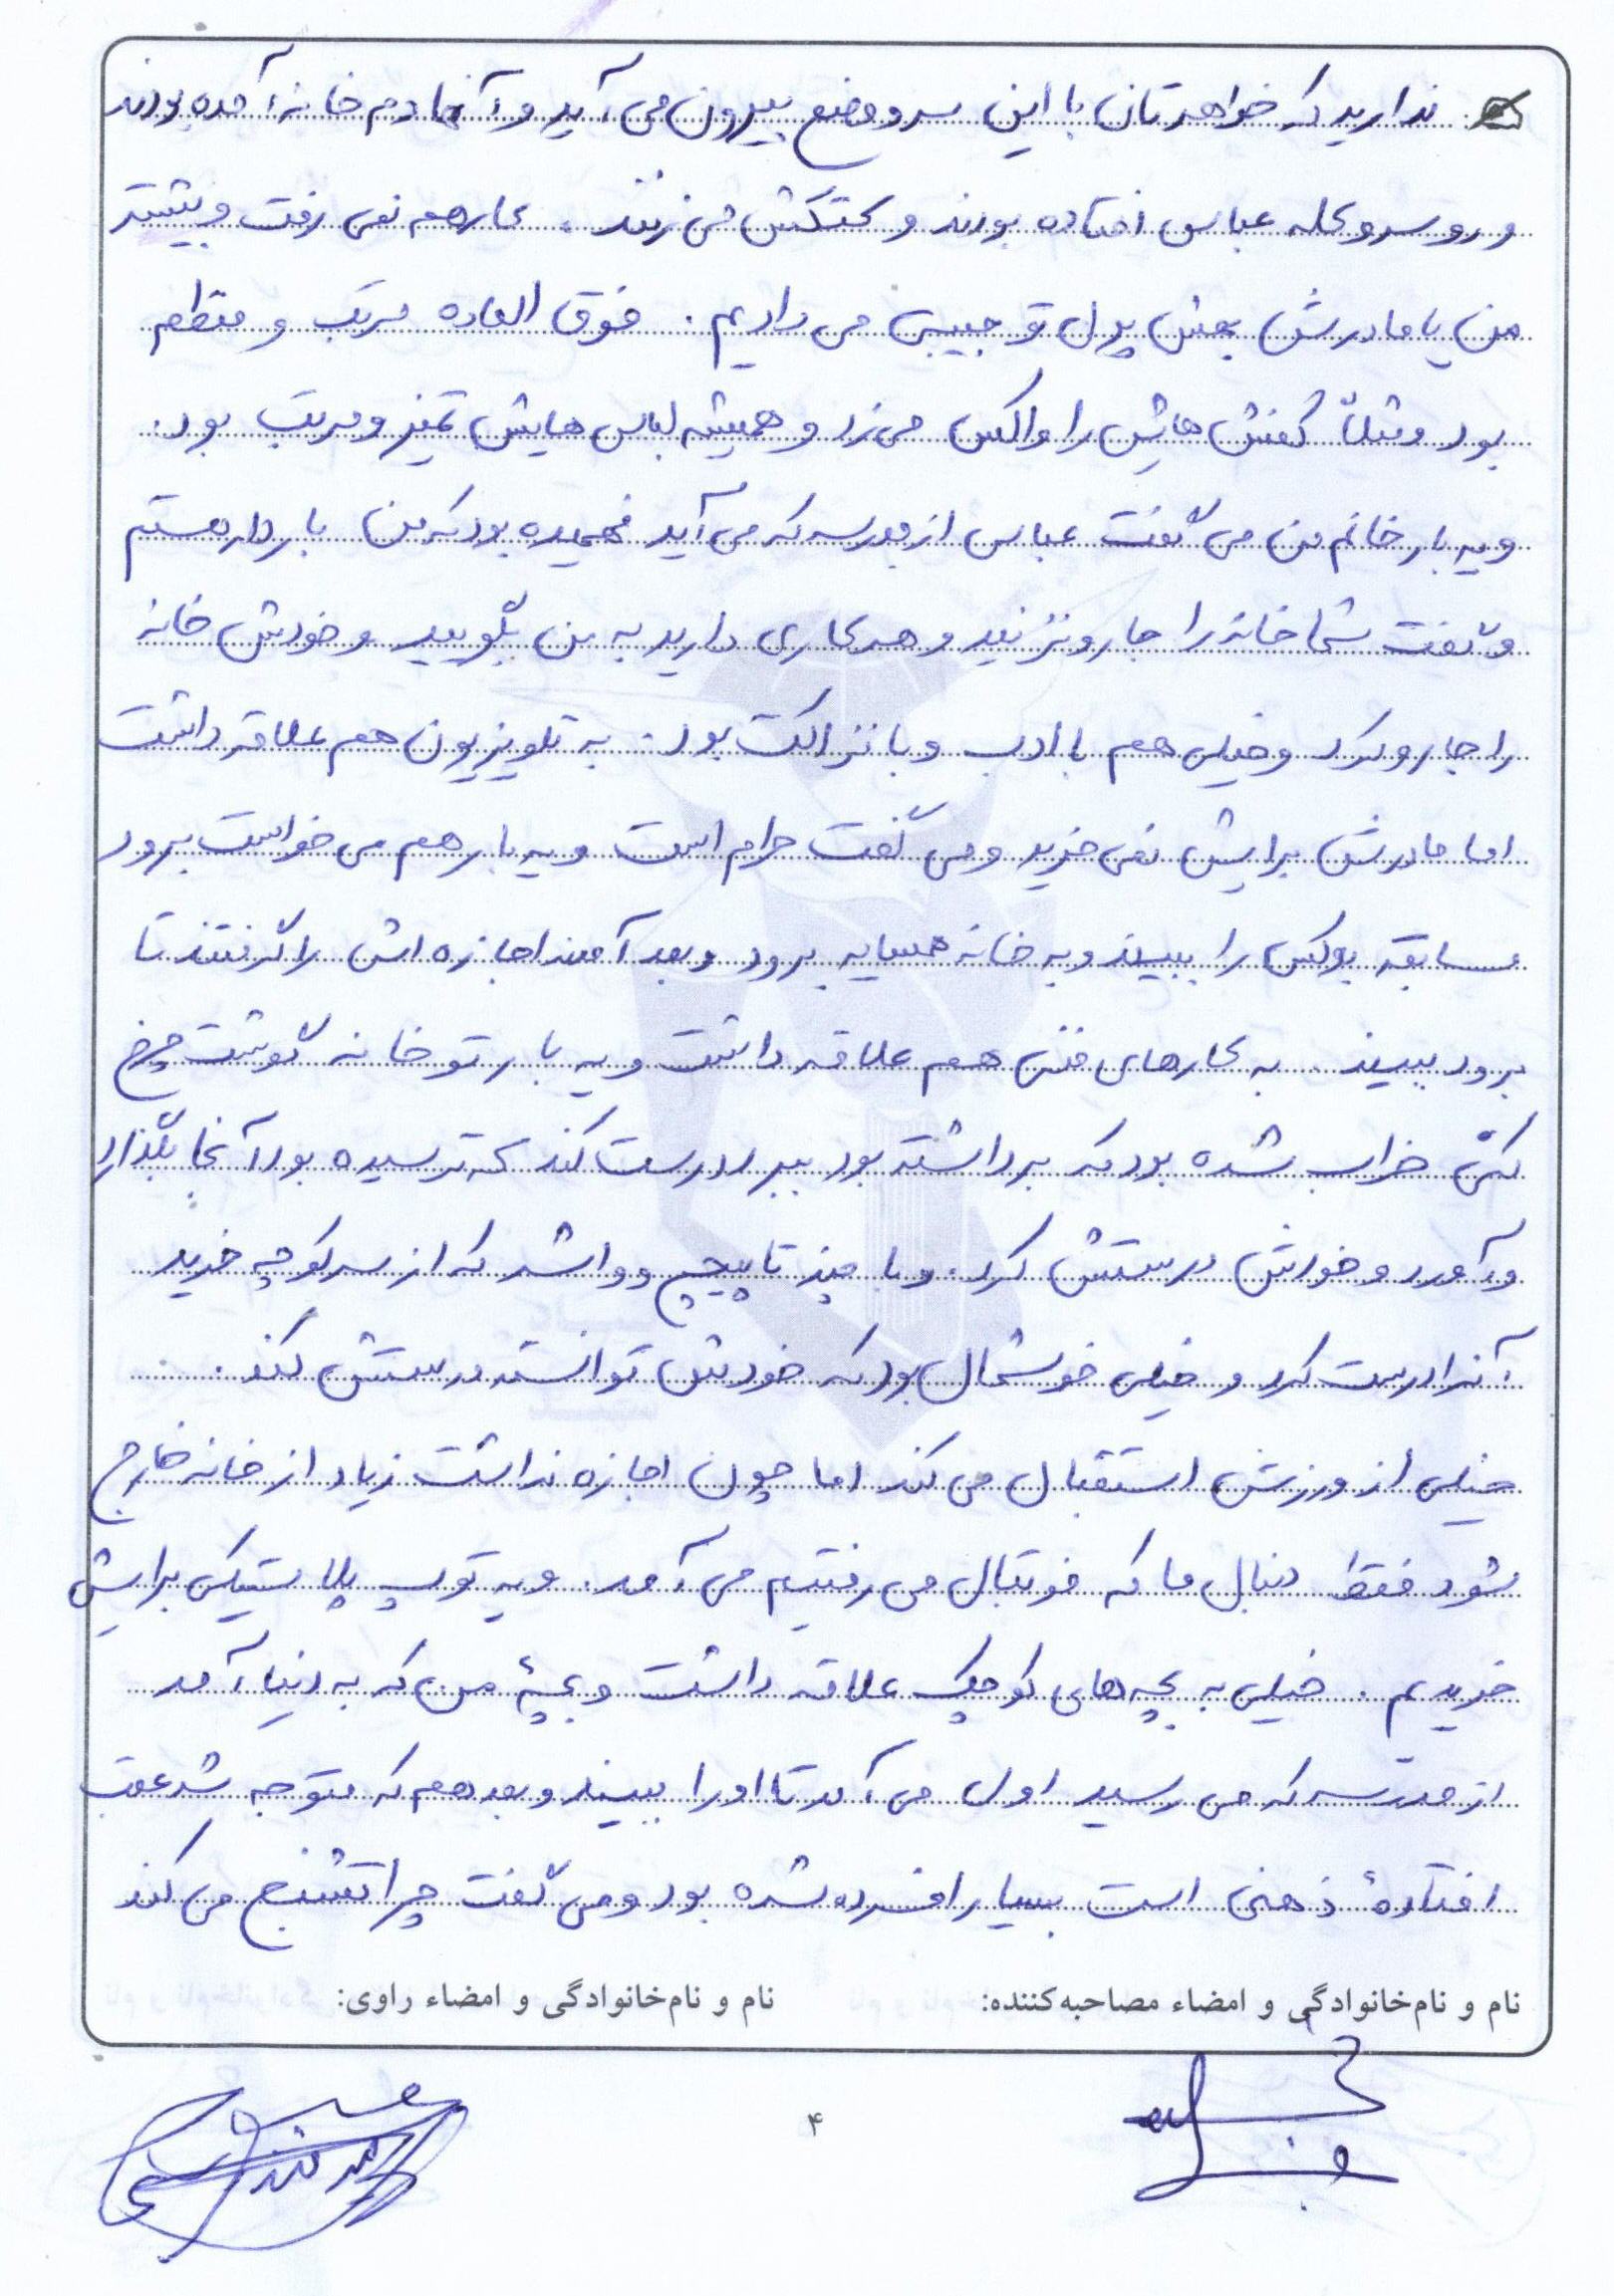 ندارید که خواهرتان با این سر و وضع بیرون می آید و آنها دم خانه آمده بودند
و رو سر و کله عباس افتاده بودند و کتکش می زنند . کار هم نمی رفت و بیشتر
من یا مادرش بهش پول تو جیبی می دادیم . فوق العاده مرتب و منظم
بود مثلاً کفش هایش را واکس می زد و همیشه لباس هایش تمیز و مرتب بود .
و یه بار خانم من می گفت عباس از مدرسه که می آید فهمیده بود که من باردار هستم
و گفت شما خانه را جارو نزنید و هر کاری دارید به من بگویید و خودش خانه
را جارو کرد و خیلی هم با ادب و با نزاکت بود . به تلویزیون هم علاقه داشت
اما مادرش برایش نمی خرید و می گفت حرام است و یه بار هم می خواست برود
مسابقه بوکس را ببیند و به خانه همسایه برود و بعد آمدند اجازه اش را گرفتند تا
برود ببیند . به کارهای فنی هم علاقه داشت و یه بار تو خانه گوشت چرخ
کنی خراب شده بود که برداشته بود ببرد درست کند که ترسیده بود آنجا بگذارد
و آمد و خودش درستش کرد . و با چند تا پیچ و واشر که از سر کوچه خرید
آنرا درست کرد و خیلی خوشحال بود که خودش توانسته درستش کند .
خیلی از ورزش استقبال می کند اما چون اجازه نداشت زیاد از خانه خارج
شود فقط دنبال ما که فوتبال می رفتیم می آمد . و یه توپ پلاستیکی برایش
خریدیم . خیلی به بچه های کوچک علاقه داشت و بچهٔ من که به دنیا آمد
از مدرسه که می رسید اول می آمد تا او را ببیند و بعد هم که متوجه شد عقب
افتادهٔ ذهنی است بسیار افسرده شده بود و می گفت چرا تشنج می کند
نام و نام‌خانوادگی و امضاء مصاحبه‌کننده: نام و نام‌خانوادگی و امضاء راوی:
۴